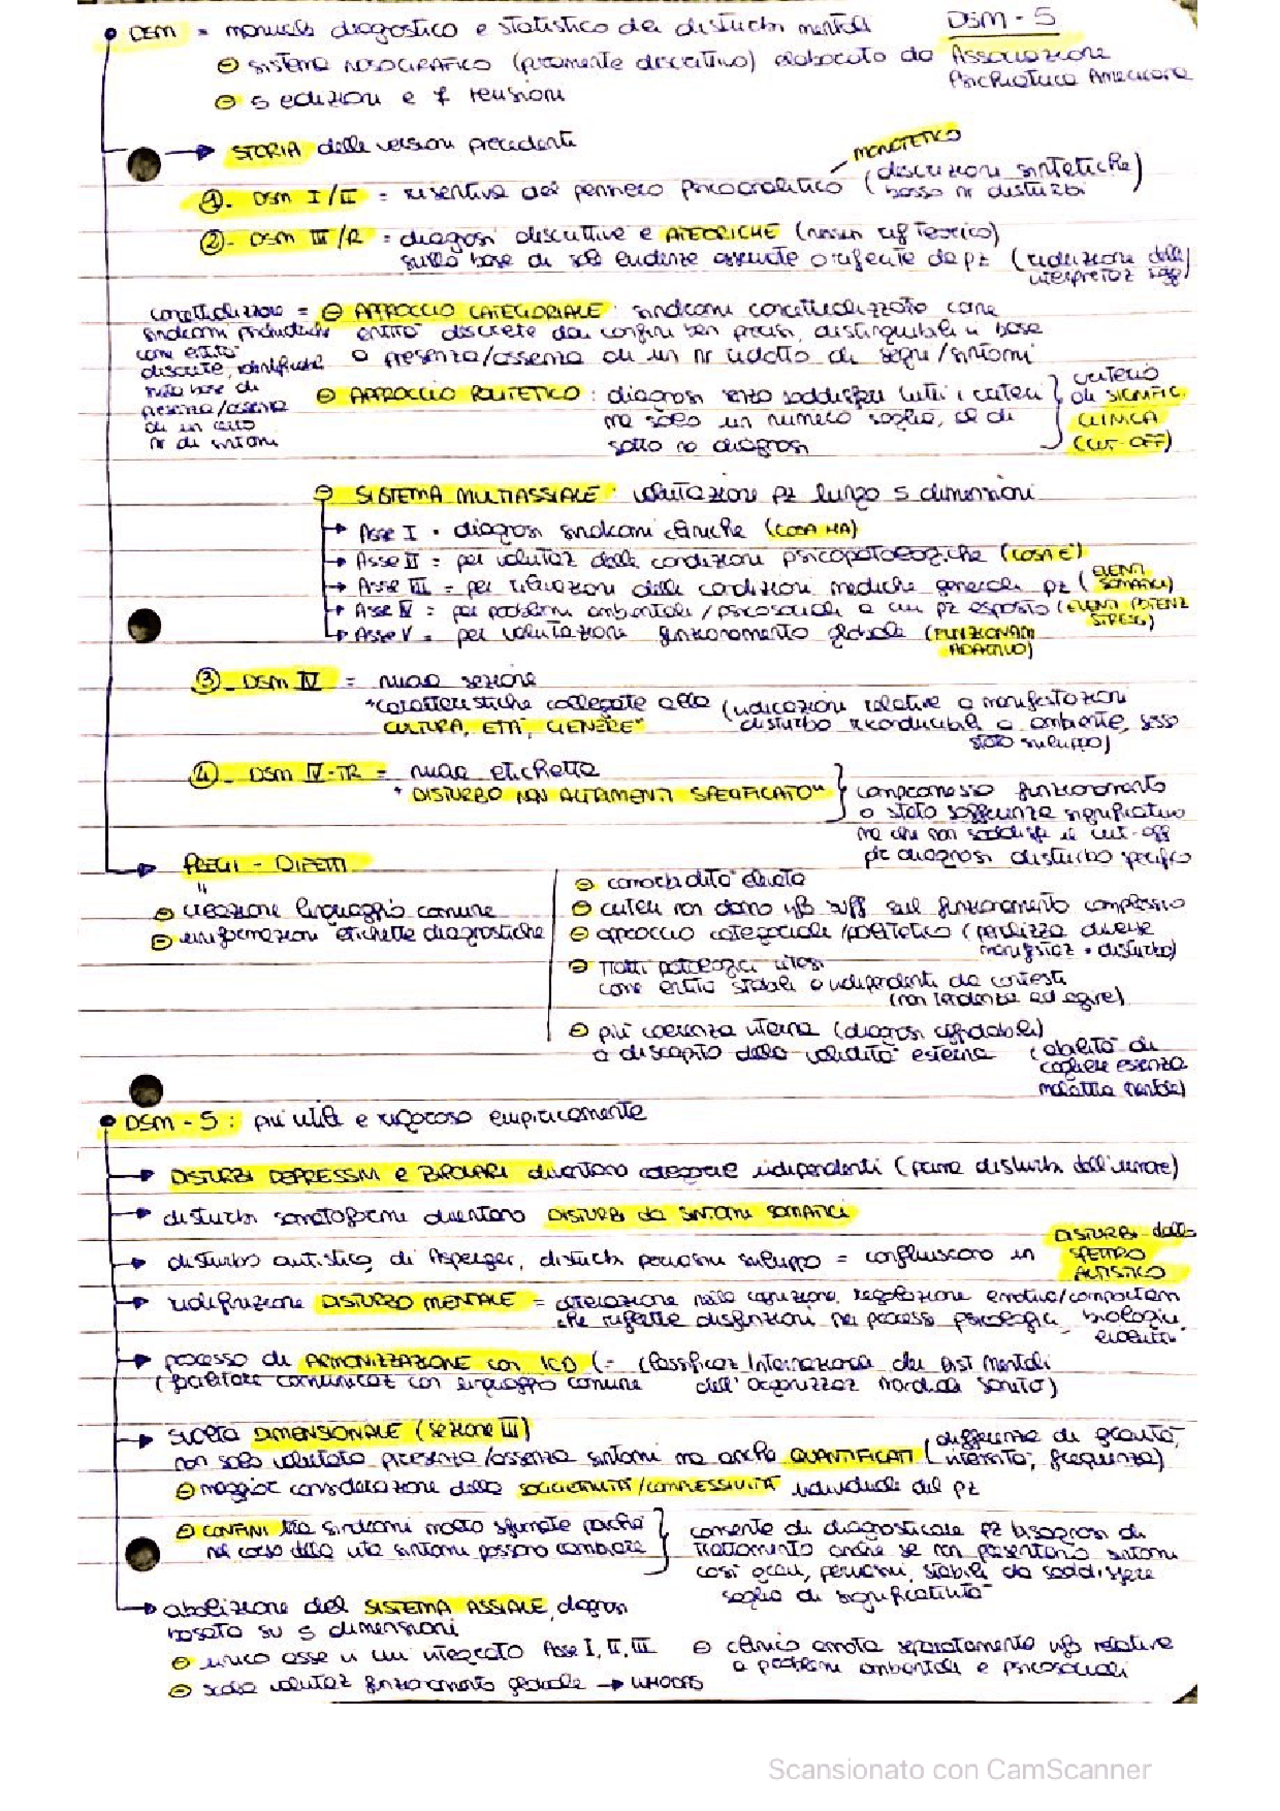 DSM - 5
DSM = manuale diagnostico e statistico dei disturbi mentali
sistema NOSOGRAFICO (puramente descrittivo) elaborato da Associazione
Psichiatrica Americana
5 edizioni e 7 revisioni
STORIA delle versioni precedenti
MONOTETICO
1. DSM I/II = risentiva del pensiero psicoanalitico (descrizioni sintetiche)
basso nr disturbi
2. DSM III/R = diagosi descrittive e ATEORICHE (nessun rif teorico)
sulla base di sole evidenze osservate o riferite da pz (riduzione delle
interpretaz sogg)
concettualizzazione = APPROCCIO CATEGORIALE: sindromi concettualizzate come
sindromi psichiatriche entità discrete dai confini ben precisi, distinguibili in base
come entità a presenza/assenza di un nr ridotto di segni/sintomi
discrete, identificate
sulla base di
presenza/assenza
di un certo
nr di sintomi
APPROCCIO POLITETICO: diagnosi senza soddisfare tutti i criteri
ma solo un numero soglia, al di
sotto no diagnosi
criterio
di SIGNIFIC.
CLINICA
(CUT-OFF)
SISTEMA MULTIASSIALE: valutazione pz lungo 5 dimensioni
Asse I = diagnosi sindromi cliniche (COSA HA)
Asse II = per valutaz delle condizioni psicopatologiche (COSA È)
Asse III = per rilevazioni delle condizioni mediche generali pz (ELEMENTI
SOMATICI)
Asse IV = per problemi ambientali/psicosociali a cui pz esposto (ELEMENTI POTENZ
STRESS)
Asse V = per valutazione funzionamento globale (FUNZIONAM
ADATTIVO)
3. DSM IV = nuova sezione
"caratteristiche collegate alla (indicazioni relative a manifestazioni
CULTURA, ETÀ, GENERE" disturbo riconducibili a ambiente, sesso
stato sviluppo)
4. DSM IV-TR = nuova etichetta
"DISTURBO NON ALTRIMENTI SPECIFICATO"
compromesso funzionamento
o stato sofferenza significativo
ma che non soddisfa il cut-off
pr diagnosi disturbo specifico
PREGI - DIFETTI
creazione linguaggio comune
uniformazioni etichette diagnostiche
comorbidità elevata
criteri non danno info suff sul funzionamento complessivo
approccio categoriale/politetico (penalizza diverse
manifestaz. disturbo)
tratti patologici intesi
come entità stabili o indipendenti da contesti
(non tendenze ad agire)
più coerenza interna (diagnosi affidabili)
a discapito della validità esterna (abilità di
cogliere essenza
malattia mentale)
DSM - 5: più utile e rigoroso empiricamente
DISTURBI DEPRESSIVI e BIPOLARI diventano categorie indipendenti (prima disturbi dell'umore)
disturbi somatoformi diventano DISTURBI da SINTOMI SOMATICI
disturbo autistico, di Asperger, disturbi pervasivi sviluppo = confluiscono in DISTURBI dello
SPETTRO
AUTISTICO
ridefinizione DISTURBO MENTALE = alterazione nella cognizione, regolazione emotiva/comportam
che riflette disfunzioni nei processi psicologici, biologici,
evolutivi
processo di ARMONIZZAZIONE con ICD (= Classificaz Internazionale dei Dist Mentali
(facilitare comunicaz con linguaggio comune dell'Organizzaz Mondiale Sanità)
svolta DIMENSIONALE (sezione III)
non solo valutata presenza/assenza sintomi ma anche QUANTIFICATI (differenze di gravità,
intensità, frequenza)
maggior considerazione della SOGGETTIVITÀ/COMPLESSIVITÀ individuale del pz
CONFINI tra sindromi molto sfumate perché
nel corso della vita sintomi possono cambiare
consente di diagnosticare pz bisognosi di
trattamento anche se non presentano sintomi
così gravi, pervasivi, stabili da soddisfare
soglia di significatività
abolizione del SISTEMA ASSIALE, diagnosi
basata su 5 dimensioni
unico asse in cui integrato Asse I, II, III
clinico annota separatamente info relative
a problemi ambientali e psicosociali
scala valutaz funzionamento globale → WHODAS
Scansionato con CamScanner